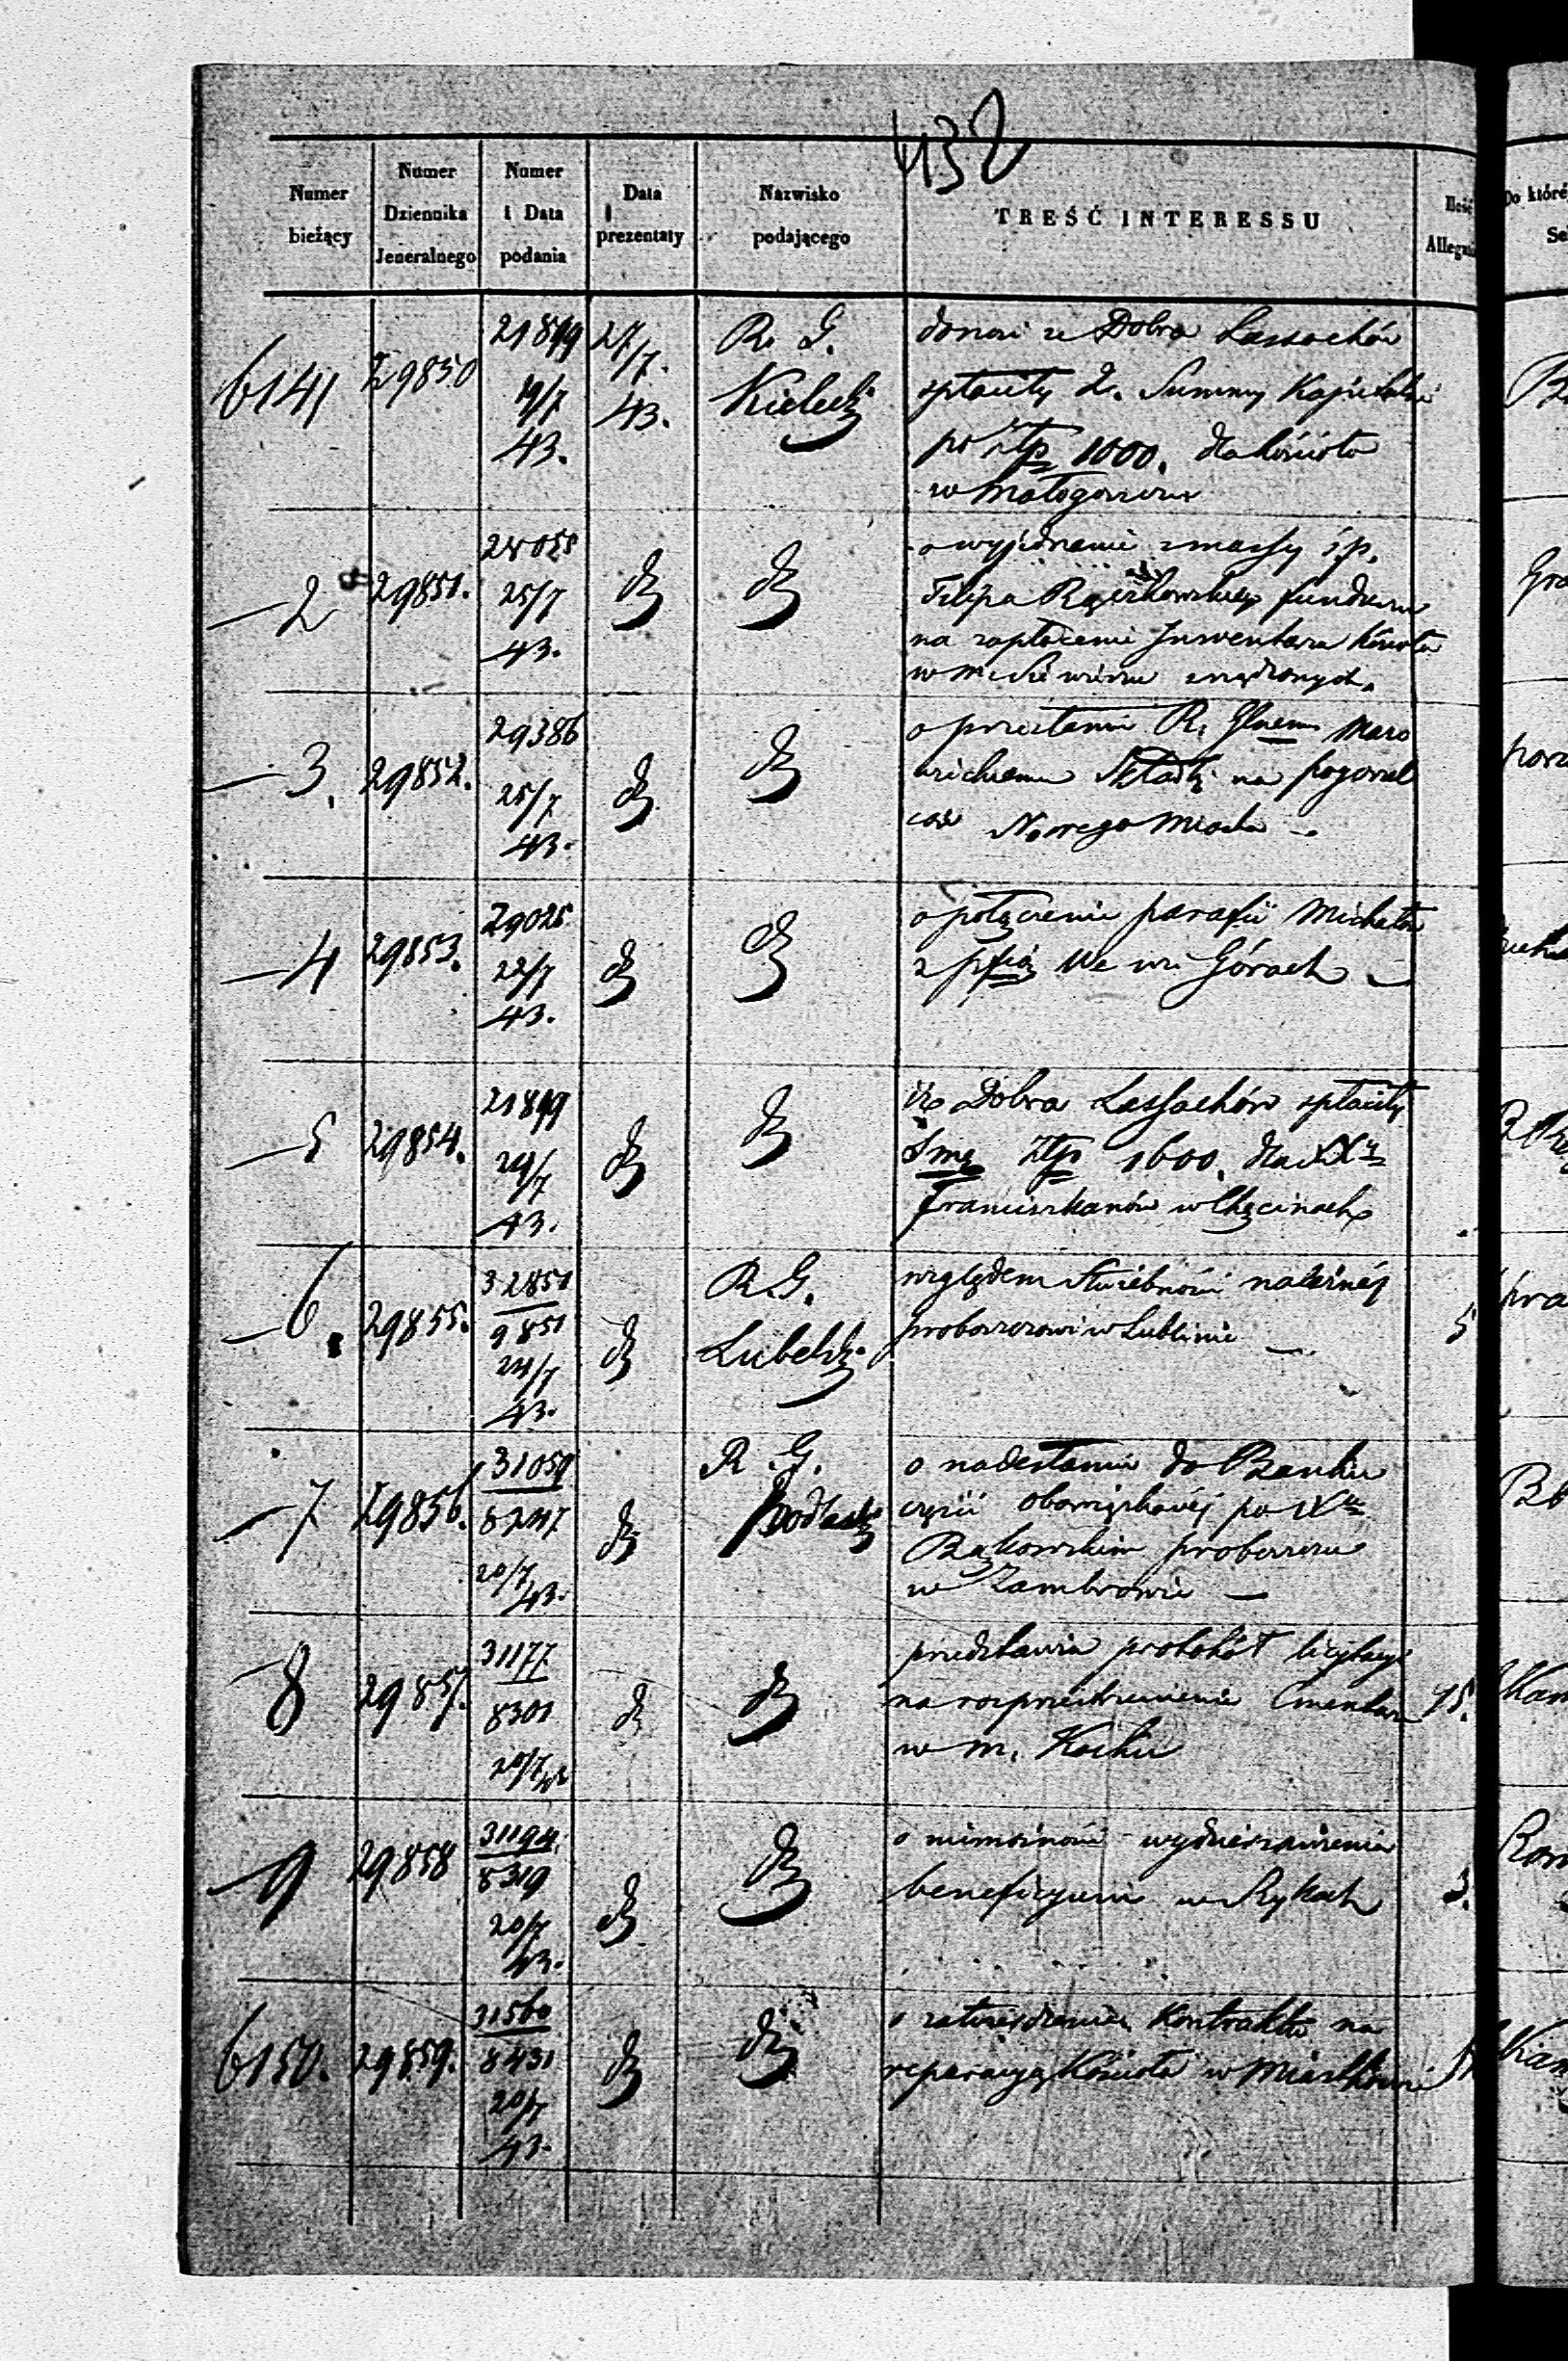 432
Numer bieżący
Numer Dziennika Jeneralnego
Numer i Data podania
Data i prezentaty
Nazwisko podającego
TREŚĆ INTERESSU
Ilość Allega
Do które
Se
6141 29850 21899 19/7 43. 27/7. 43. R. G. Kielecki
donosi że Dobra Lassochów
spłaciły 2. Summy Kapitalne
po Złp 1000. dla kościoła
w Małogoszczu
2 29851. 25/7 43. dt dt
o wyjednanie z massy ś p.
Filipa funduszu
na zapłacenie Inwentarza kościoła
w
3. 29852. 29386 25/7 43. dt dt
o przesłanie R. Głnemu Mazo
wieckiemu Składki na pogorzel
ców Nowego Miasta –
4 29853. 29025 22/7 43. dt dt
o połączenie parafii Michałów
z pfią we wsi Górach –
5 29854. 21899 29/7 43. dt dt
że Dobra Lassochów spłaciły
Smę Złp 1600. dla XX
Franciszkanów w Chęcinach
6. 29855. 32851 9851 24/7 43. dt R. G. Lubelski
względem Służebności należnéj
proboszczowi w Lublinie – 5
7 29856. 31059 8247 20/7 43. dt R. G. Podlaski
o nadesłanie do Banku
części obowiązkowéj po X
Bąkowskim proboszczu
w Zambrowie –
8 29857. 31177 8301 20/7 43 dt dt
przedstawia protokół licytacyi
na rozprzestrzenienie Cmentarza 15.
w m. Kocku
9 29858 31194. 8319 20/7 43. dt dt
o niemożności wydzierżawienia
beneficyum w Rykach 3.
6150. 29859. 31560 8431 20/7 43. dt dt
o zatwierdzenie Kontraktu na
reparacyą Kościoła w Miastkowie